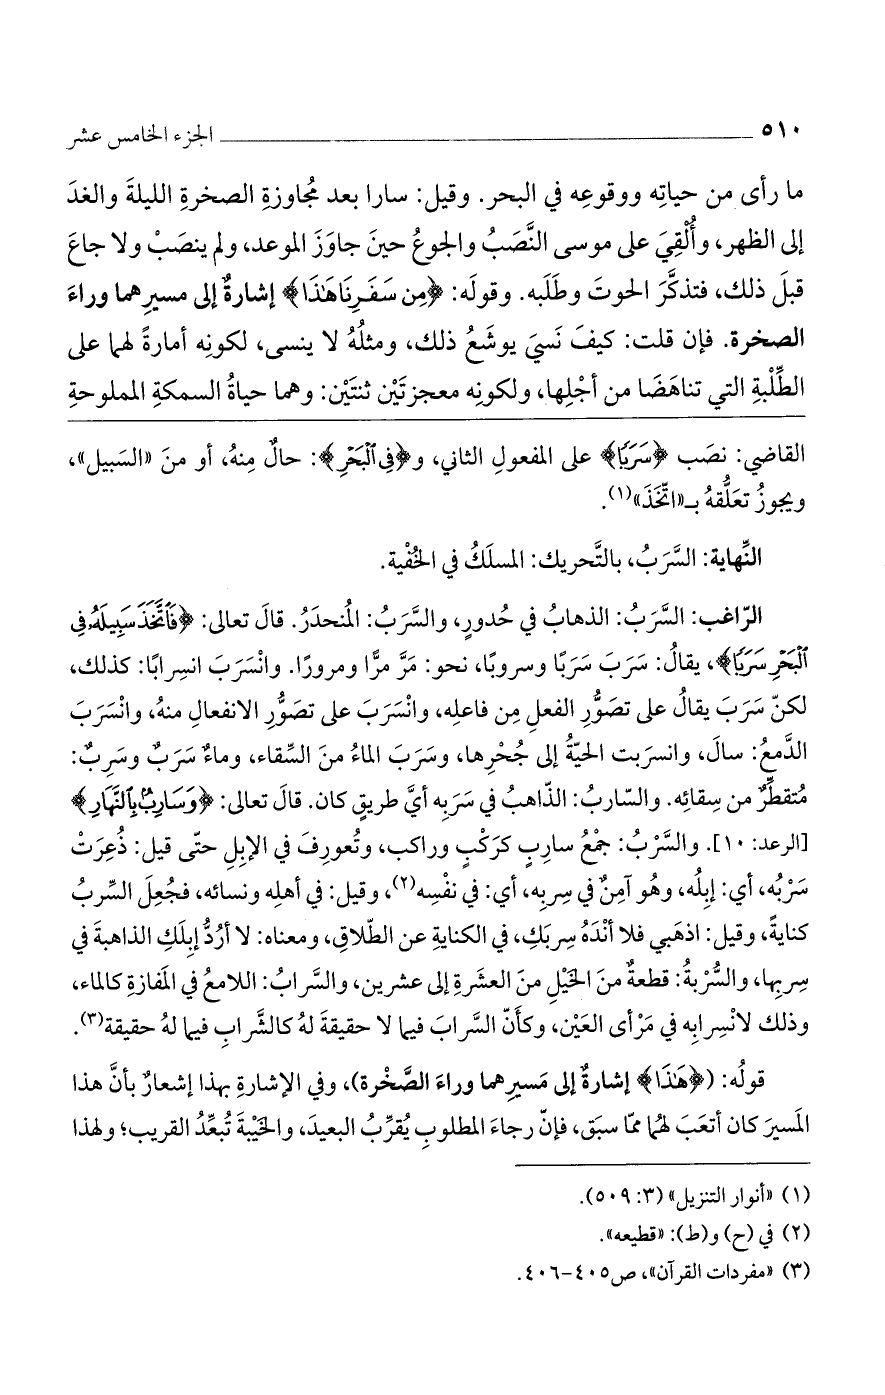 ٥١٠ ــــــــــــــــــــ الجزء الخامس عشر
ما رأى من حياتِه ووقوعِه في البحر. وقيل: سارا بعد مُجاوزةِ الصخرةِ الليلةَ والغدَ
إلى الظهر، وأُلْقِيَ على موسى النَّصَبُ والجوعُ حينَ جاوَزَ الموعد، ولم ينصَبْ ولا جاعَ
قبلَ ذلك، فتذكَّرَ الحوتَ وطَلَبه. وقولَه: ﴿مِن سَفَرِنَا هَٰذَا﴾ إشارةٌ إلى مسيرِهما وراءَ
الصخرة. فإن قلت: كيفَ نَسيَ يوشَعُ ذلك، ومثلُهُ لا ينسى، لكونِه أمارةً لهما على
الطِّلْبةِ التي تناهَضَا من أجْلِها، ولكونِه معجزتَيْن ثنتَيْن: وهما حياةُ السمكةِ المملوحةِ
القاضي: نصَب ﴿سَرَبًا﴾ على المفعولِ الثاني، و﴿فِي ٱلْبَحْرِ﴾: حالٌ مِنهُ، أو منَ «السَبيل»،
ويجوزُ تعَلُّقهُ بـ«اتّخَذَ»(١).
النِّهاية: السَّرَبُ، بالتَّحريك: المسلَكُ في الخُفْية.
الرّاغب: السَّرَبُ: الذهابُ في حُدورٍ، والسَّرَبُ: المُنحدَرُ. قالَ تعالى: ﴿فَٱتَّخَذَ سَبِيلَهُۥ فِي
ٱلْبَحْرِ سَرَبًا﴾، يقالُ: سَرَبَ سَرَبًا وسروبًا، نحو: مَرَّ مرًّا ومرورًا. وانْسَرَبَ انسِرابًا: كذلك،
لكنّ سَرَبَ يقالُ على تصَوُّرِ الفعلِ مِن فاعلِه، وانْسَرَبَ على تصَوُّرِ الانفعالِ منهُ، وانْسَرَبَ
الدَّمعُ: سالَ، وانسرَبت الحيّةُ إلى جُحْرِها، وسَرَبَ الماءُ منَ السِّقاء، وماءٌ سَرَبٌ وسَرِبٌ:
مُتقطِّرٌ من سِقائِه. والسّاربُ: الذّاهبُ في سَرَبِه أيَّ طريقٍ كان. قالَ تعالى: ﴿وَسَارِبٌۢ بِٱلنَّهَارِ﴾
[الرعد: ١٠]. والسَّرْبُ: جمْعُ سارِبٍ كرَكْبٍ وراكب، وتُعورِفَ في الإبلِ حتّى قيل: ذُعِرَتْ
سَرْبُه، أي: إبلُه، وهُو آمِنٌ في سِربِه، أي: في نفْسِه(٢)، وقيل: في أهلِه ونسائه، فجُعِلَ السِّربُ
كنايةً، وقيل: اذهَبي فلا أنْدَهُ سِربَكِ، في الكنايةِ عن الطّلاقِ، ومعناه: لا أرُدُّ إبلَكِ الذاهبةَ في
سِربِها، والسُّرْبةُ: قطعةٌ منَ الخَيْلِ منَ العشَرةِ إلى عشرين، والسَّرابُ: اللامعُ في المَفازةِ كالماء،
وذلك لانْسِرابِه في مَرْأى العَيْن، وكأنّ السَّرابَ فيما لا حقيقةَ لهُ كالشَّرابِ فيما لهُ حقيقة(٣).
قولُه: (﴿هَٰذَا﴾ إشارةٌ إلى مَسيرِهما وراءَ الصَّخْرة)، وفي الإشارةِ بهذا إشعارٌ بأنَّ هذا
المَسيرَ كان أتعَبَ لهُما ممّا سبَق، فإنّ رجاءَ المطلوبِ يُقرِّبُ البعيدَ، والخَيْبةَ تُبعِّدُ القريب؛ ولهذا
(١) «أنوار التنزيل» (٣: ٥٠٩).
(٢) في (ح) و(ط): «قطيعه».
(٣) «مفردات القرآن»، ص٤٠٥-٤٠٦.